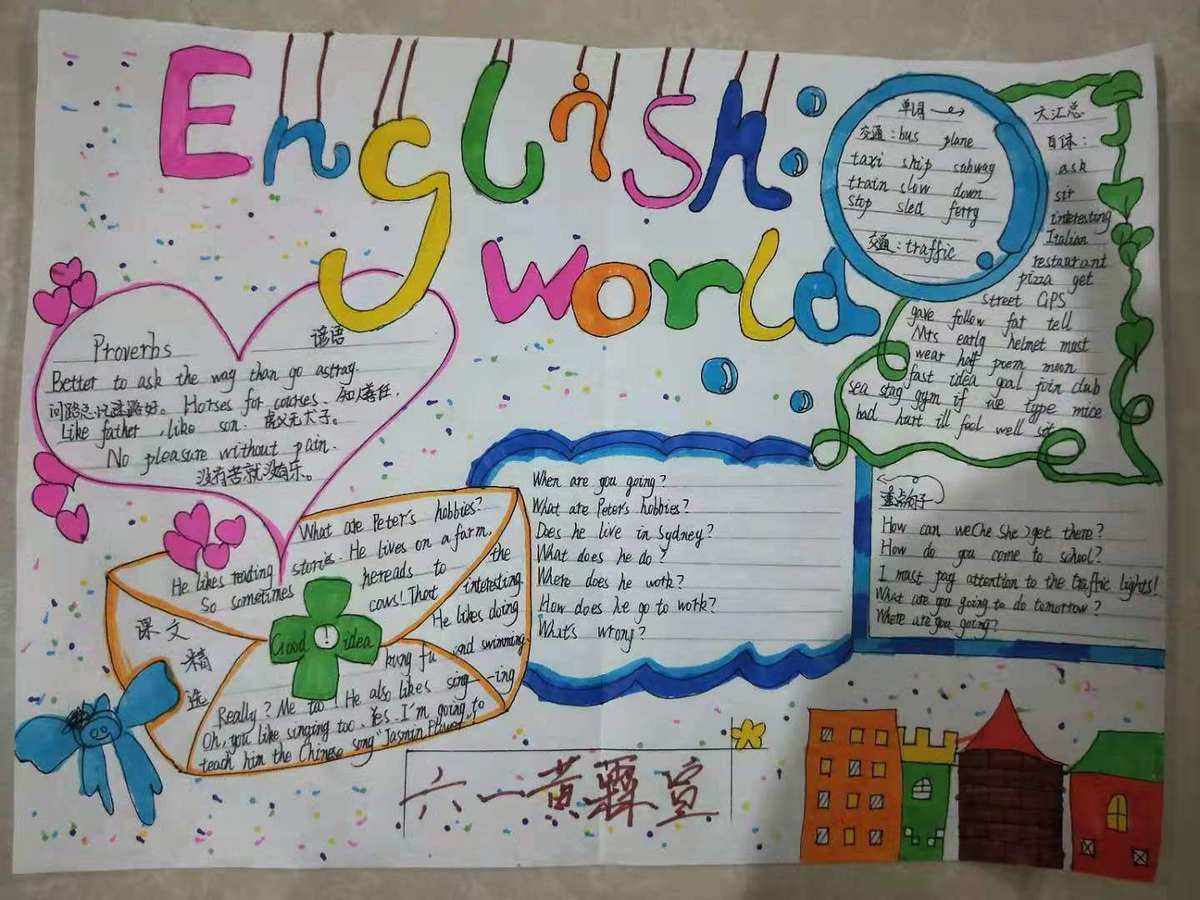 English
world
单词
交通:bus plane
taxi ship subway
train slow down
stop sled ferry
交通:traffic
大汇总
ask
sir
interesting
Italian
restaurant
pizza get
street GPS
gave follow far tell
Mrs early helmet must
wear
fast idea goal join club
sea stag gym if we type mice
bad hurt ill feel well
Proverbs 谚语
Better to ask the way than go astray.
问路总比迷路好。 Horses for courses. 知人善任.
Like father , like son. 虎父无犬子。
No pleasure without pain.
没有苦就没有乐。
What are Peter's hobbies?
He likes reading stories. He lives on a farm,
So sometimes hereads to the
cows! That interesting
He likes doing
kung fu and swimming
课文精选
Good idea
Really? Me too! He also likes sing--ing
Oh, you like singing too. Yes. I'm going to
teach him the Chinese song "Jasmin
When are you going?
What are Peter's hobbies?
Does he live in Sydney?
What does he do?
Where does he work?
How does he go to work?
What's wrong?
重点句子
How can we(he she)get there?
How do you come to school?
I must pag attention to the traffic lights!
What are you going to do tomorrow?
Where are you going?
六一黄霖宣